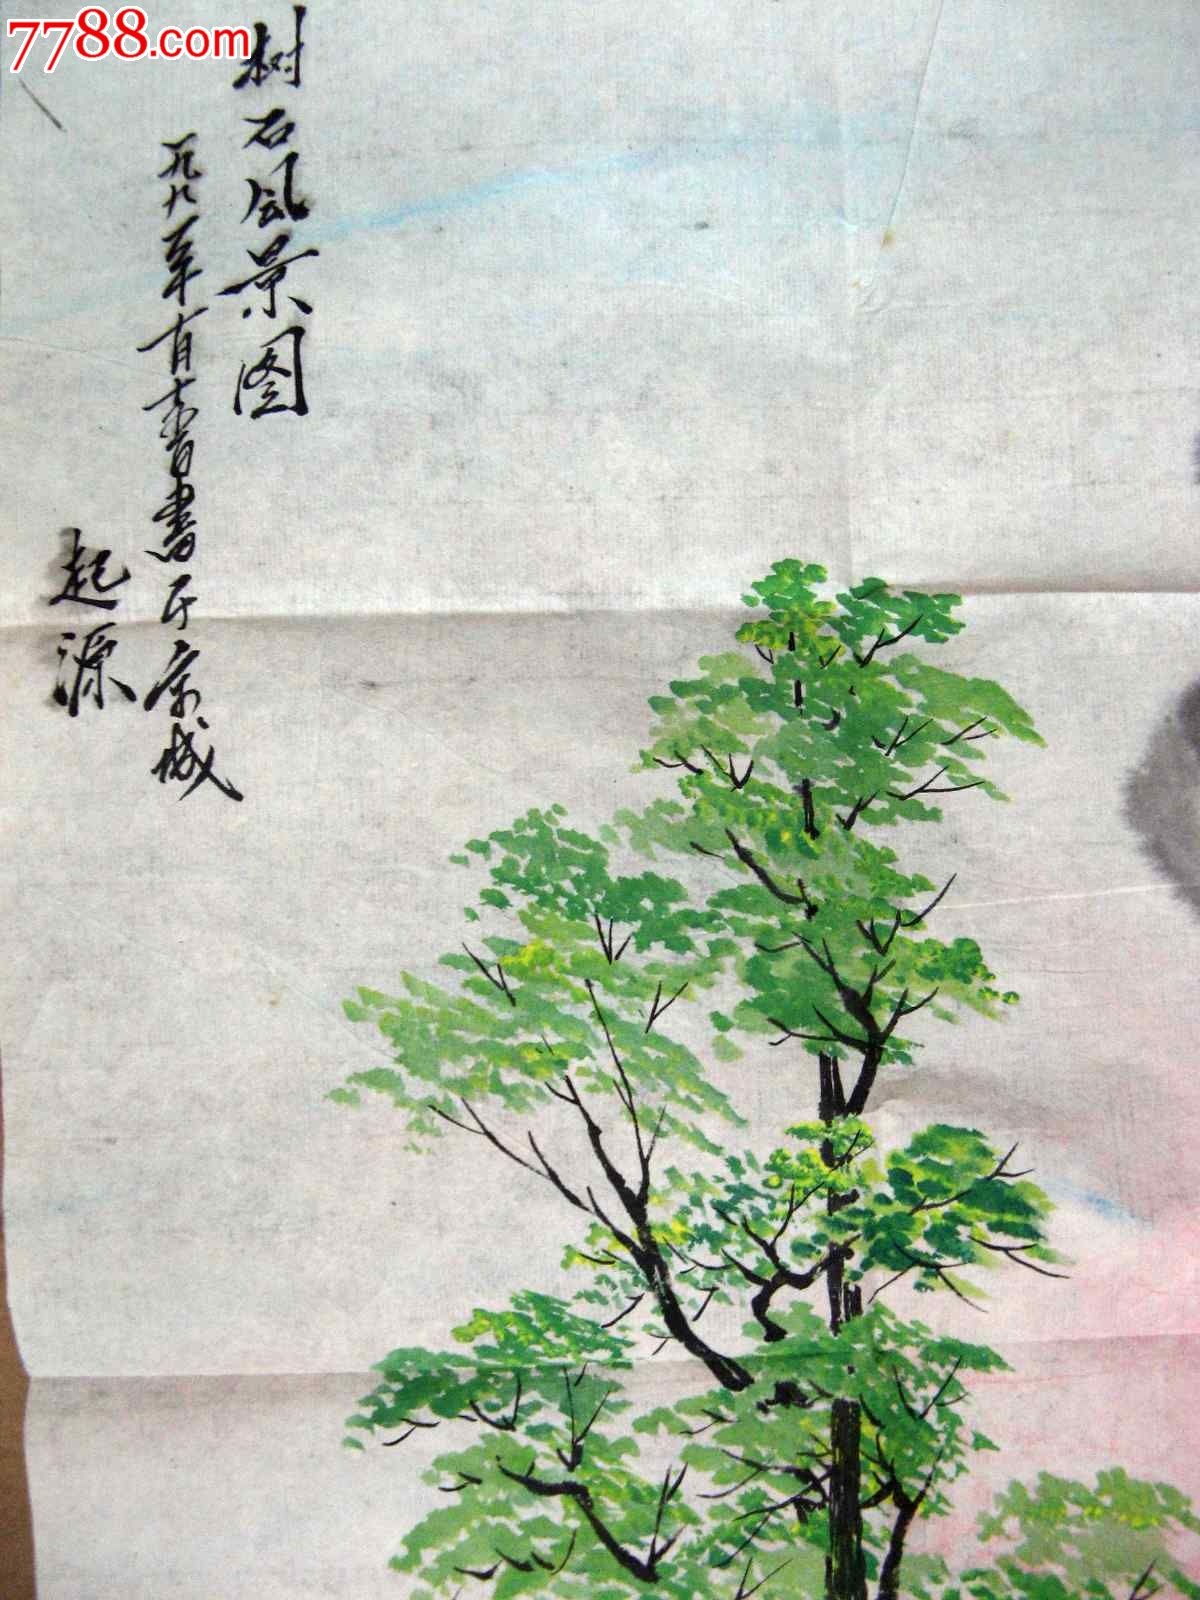 7788.com
树石风景图
一九八一年百春书于京城
起源